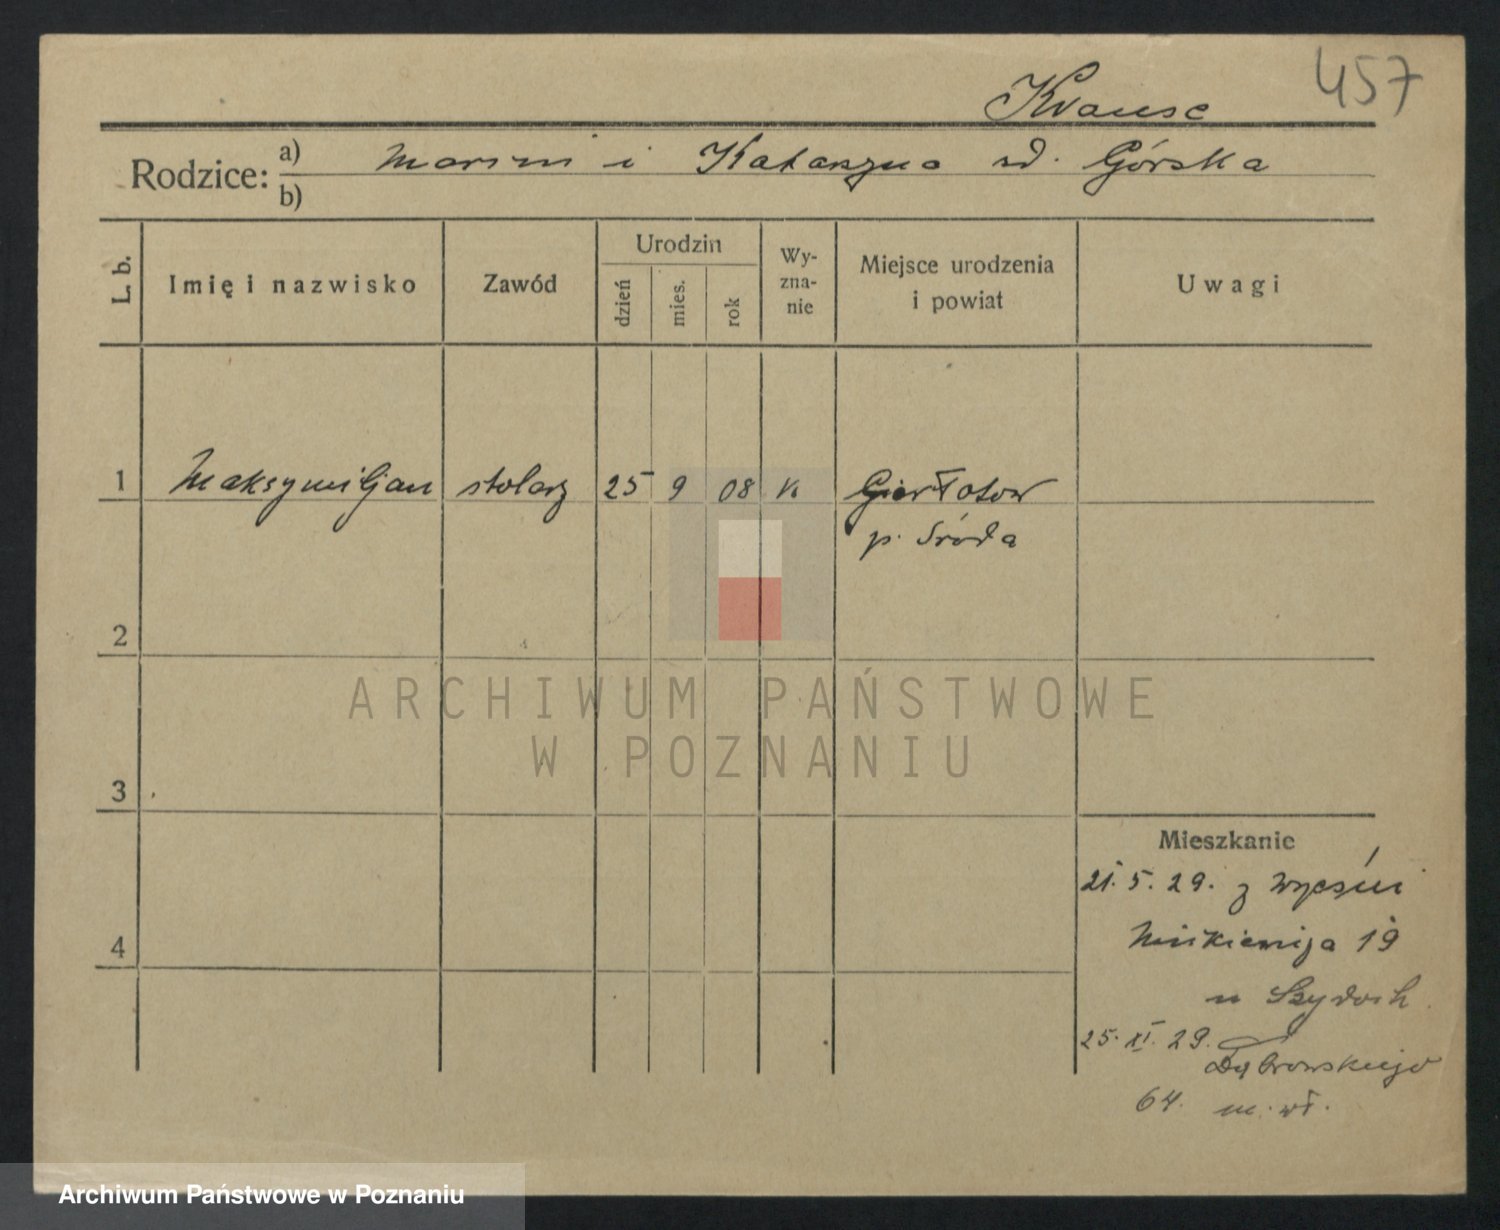 457
Krause
Rodzice: a) Marcin i Katarzyna zd. Górska
b)
L. b.
Imię i nazwisko
Zawód
Urodzin
dzień
mies.
rok
Wy-
zna-
nie
Miejsce urodzenia
i powiat
Uwagi
1 Maksymiljan stolarz 25 9 08 k Gierłatow
p. Środa
2
3
4
Mieszkanie
21. 5. 29. z
Mickiewicza 19
u
25. XI. 29.
Dąbrowskiego
64. m. wł.
ARCHIWUM PAŃSTWOWE
W POZNANIU
Archiwum Państwowe w Poznaniu